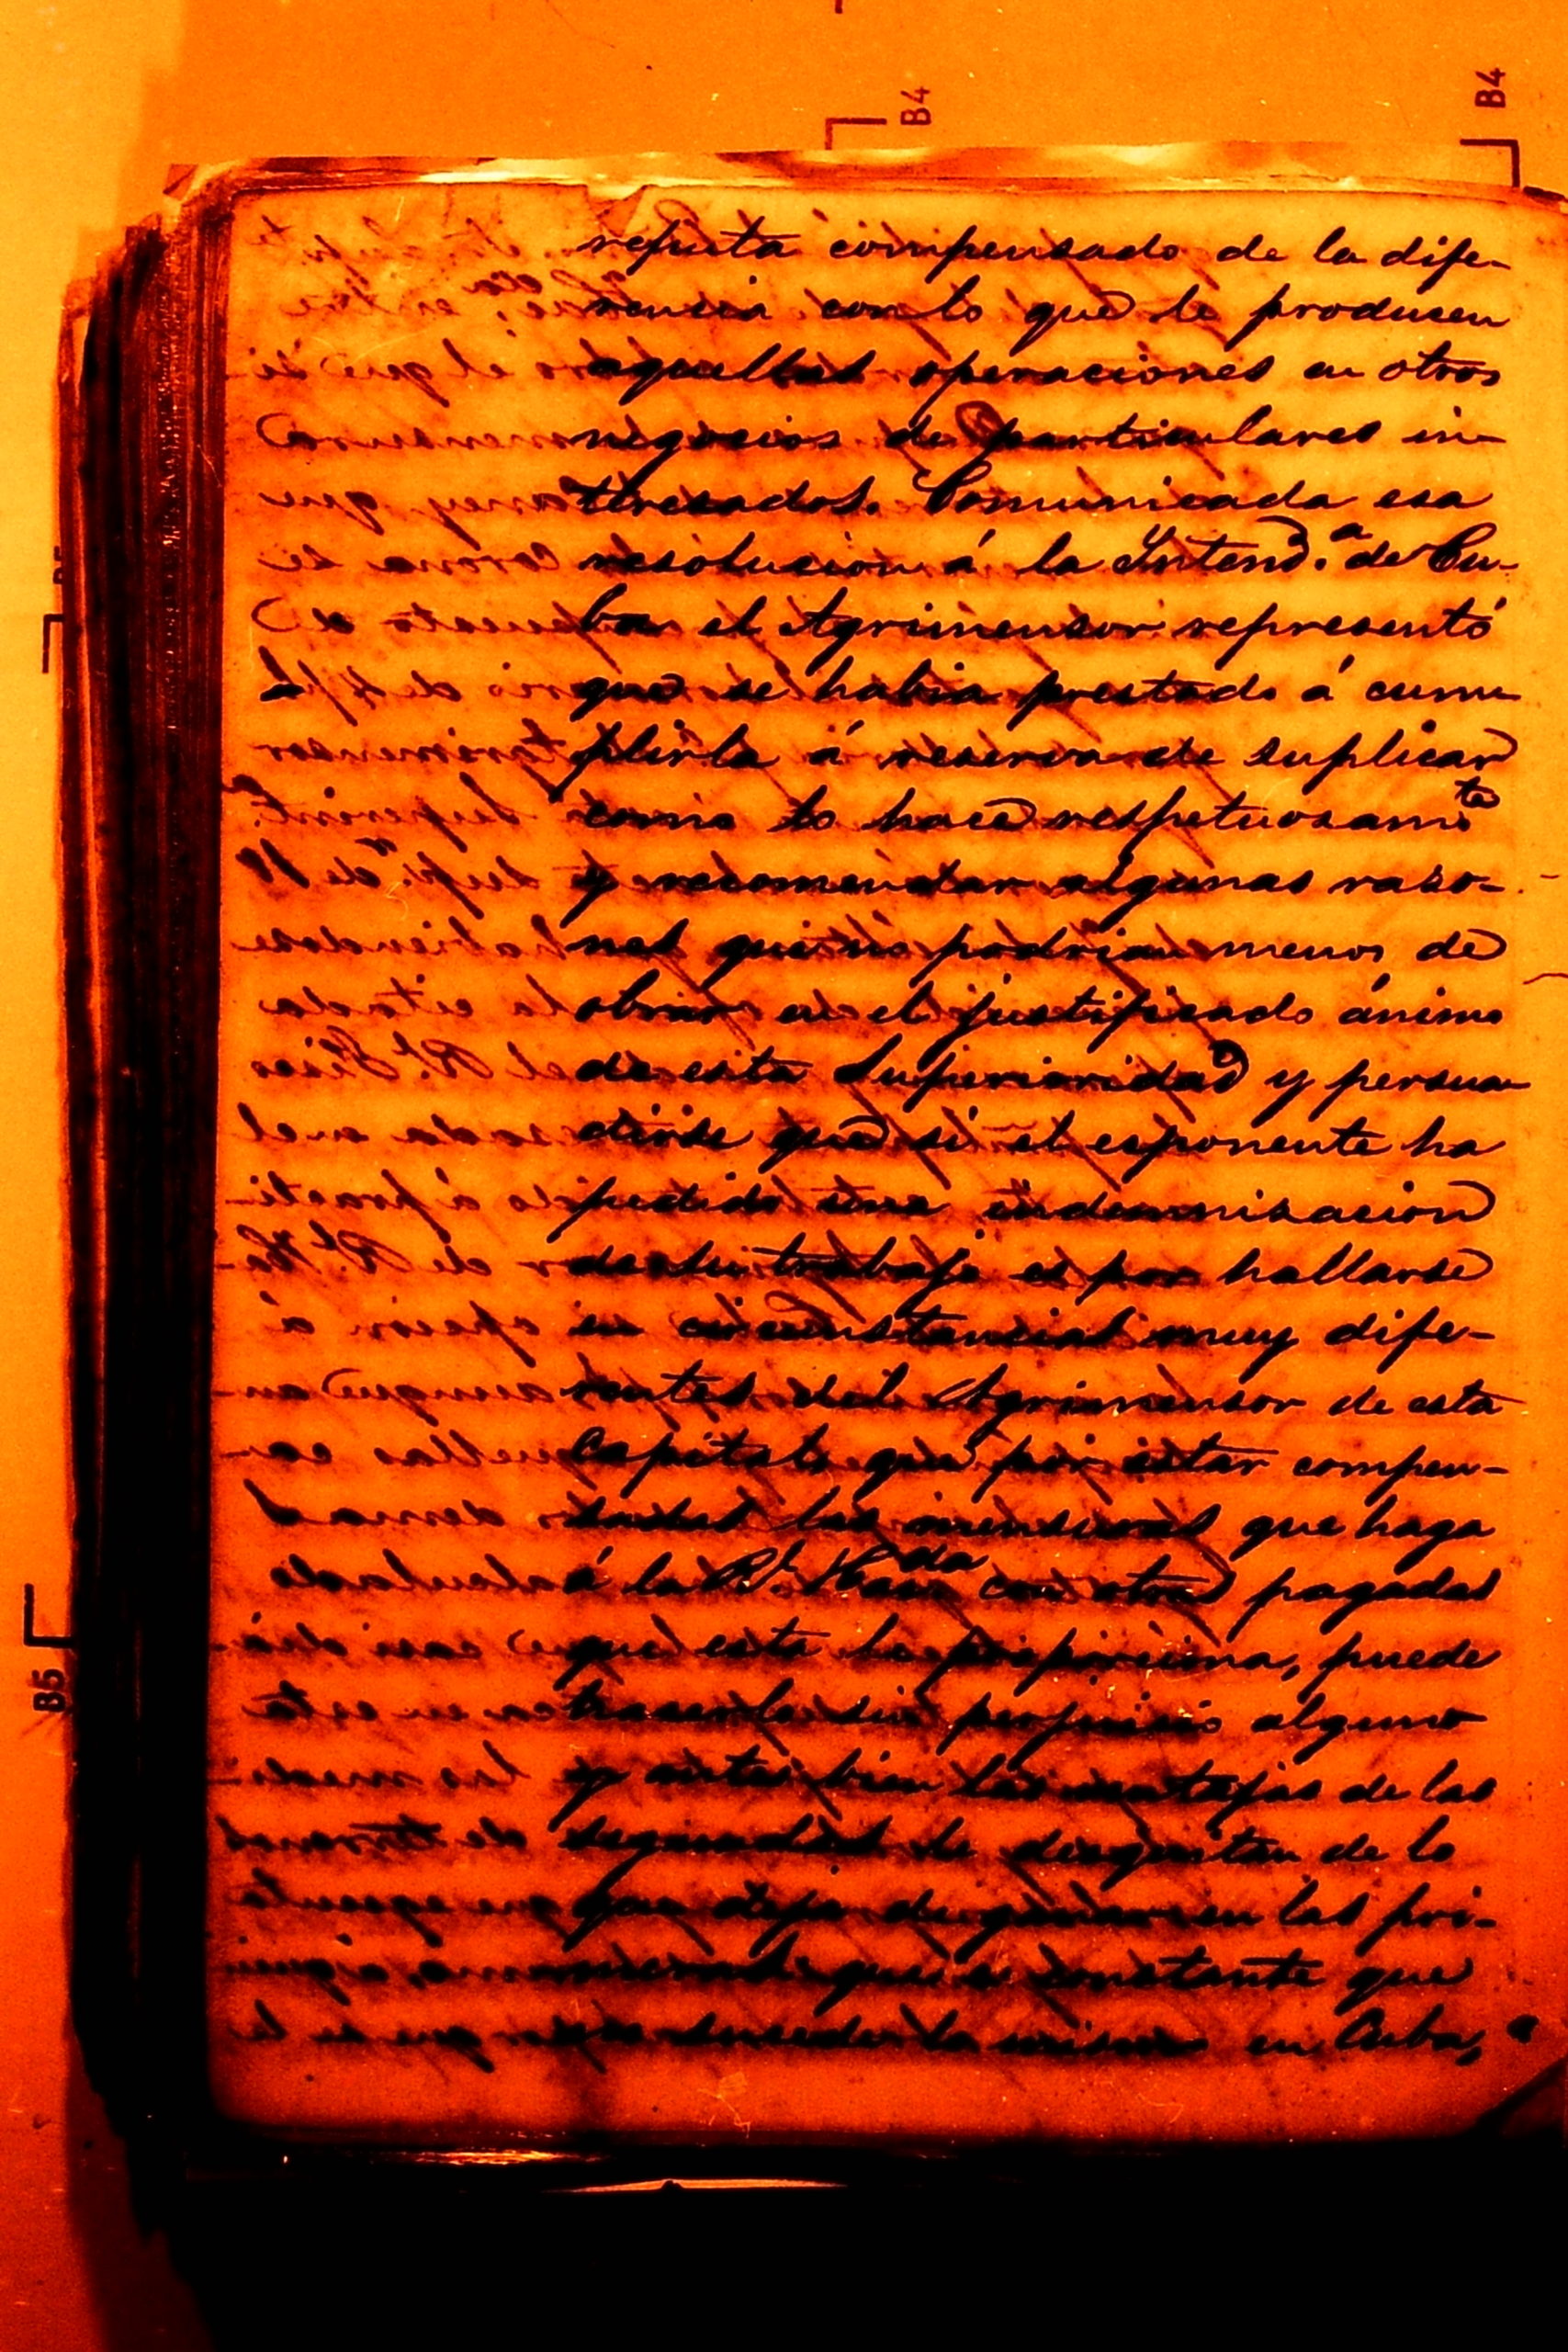 B4
B4
reputa compensado de la dife-
rencia con lo que le producen
aquellas operaciones en otros
negocios de particulares in-
teresados. Comunicada esa
resolucion á la Intend.ª de Cu-
ba el Agrimensor representó
que se habia prestado á cum
plirla á reserva de suplicar
como lo hace respetuosam.te
y recomendar algunas razo-
nes que no podrian menos de
obrar en el justificado ánimo
de esta Superioridad y persua
dirse que si el esponente ha
pedido una indemnisacion
de su trabajo es por hallarse
en circunstancias muy dife-
rentes del Agrimensor de esta
Capital, que por estar compen-
sadas las mensuras que haga
á la Rl. Hacda con otras pagadas
que esta le proporciona, puede
hacerlo sin perjuicio alguno
y antes bien las ventajas de las
segundas le desquitan de lo
que deja de ganar en las pri-
meras que es constante que
no sucede lo mismo en Cuba,
B5